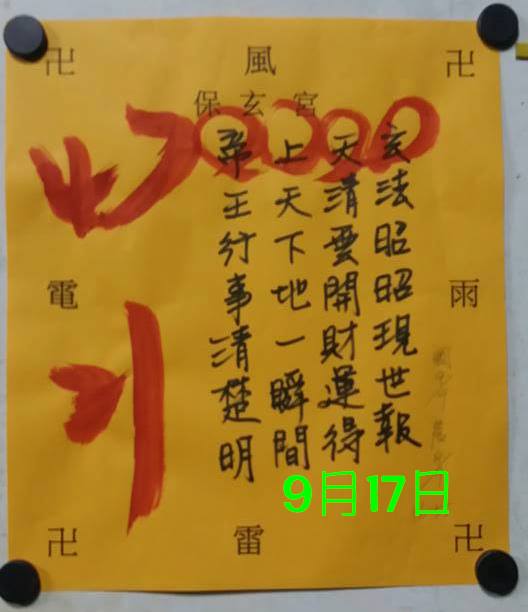 卍 風 卍
保玄宮
玄法昭昭現世報
天清雲開財運得
上天下地一瞬間
帝王行事清楚明
電
雨
9月17日
卍 雷 卍